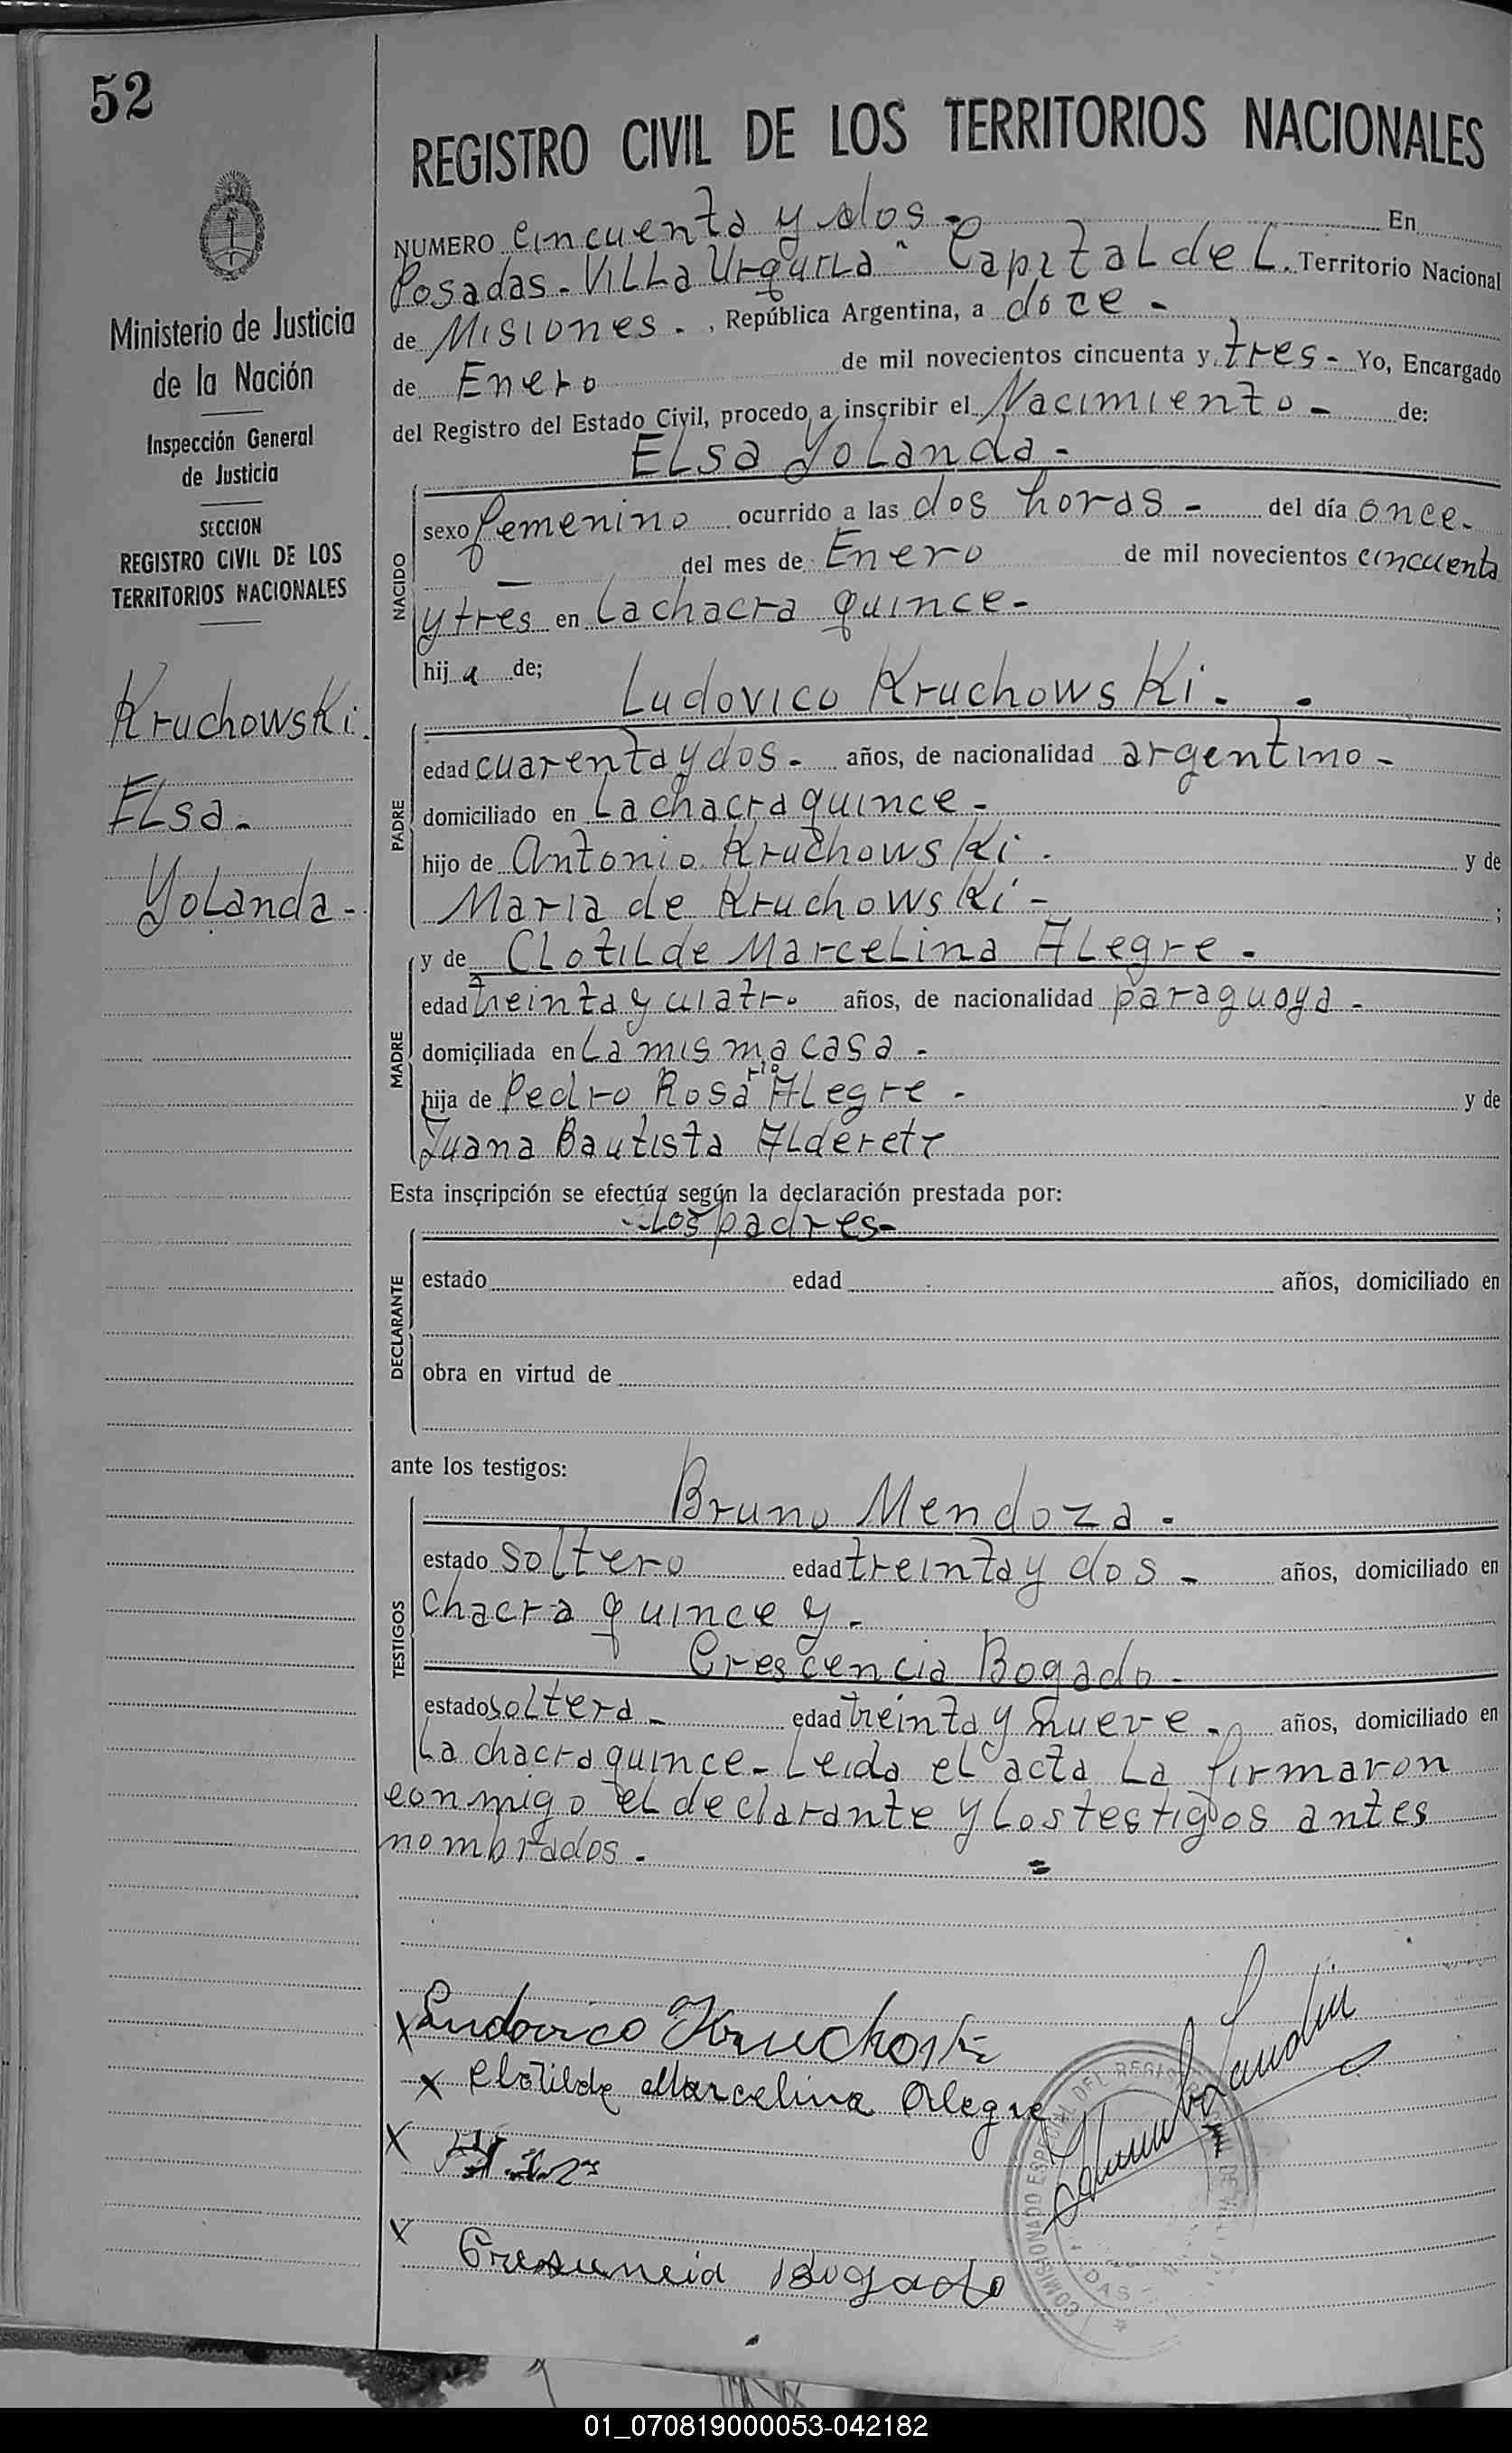 52
Ministerio de Justicia
de la Nación
Inspección General
de Justicia
SECCION
REGISTRO CIVIL DE LOS
TERRITORIOS NACIONALES
Kruchowski.
Elsa-
Yolanda-
REGISTRO CIVIL DE LOS TERRITORIOS NACIONALES
NUMERO cincuenta y dos - En
Posadas - Villa Urquiza - Capital del. Territorio Nacional
de Misiones. , República Argentina, a doce -
de Enero de mil novecientos cincuenta y tres - Yo, Encargado
del Registro del Estado Civil, procedo a inscribir el Nacimiento - de:
Elsa Yolanda -
NACIDO
sexo femenino ocurrido a las dos horas - del día once -
- del mes de Enero de mil novecientos cincuenta
y tres en La chacra quince -
hij a de;
Ludovico Kruchowski.
PADRE
edad cuarenta y dos - años, de nacionalidad argentino -
domiciliado en La chacra quince -
hijo de Antonio Kruchowski - y de
Maria de Kruchowski - ;
MADRE
y de Clotilde Marcelina Alegre -
edad treinta y cuatro años, de nacionalidad paraguaya -
domiciliada en La misma casa -
hija de Pedro Rosa rio Alegre - y de
Juana Bautista Alderete
Esta inscripción se efectúa según la declaración prestada por:
Los padres -
DECLARANTE
estado edad años, domiciliado en
obra en virtud de
ante los testigos:
Bruno Mendoza -
TESTIGOS
estado soltero edad treinta y dos - años, domiciliado en
chacra quince y -
Crescencia Bogado -
estado soltera - edad treinta y nueve - años, domiciliado en
La chacra quince - Leida el acta La firmaron
conmigo el declarante y Los testigos antes
nombrados -
x Ludovico
x Clotilde Marcelina Alegre
x
x Bogado
COMISIONADO ESPECIAL DEL REGISTRO
01_070819000053-042182